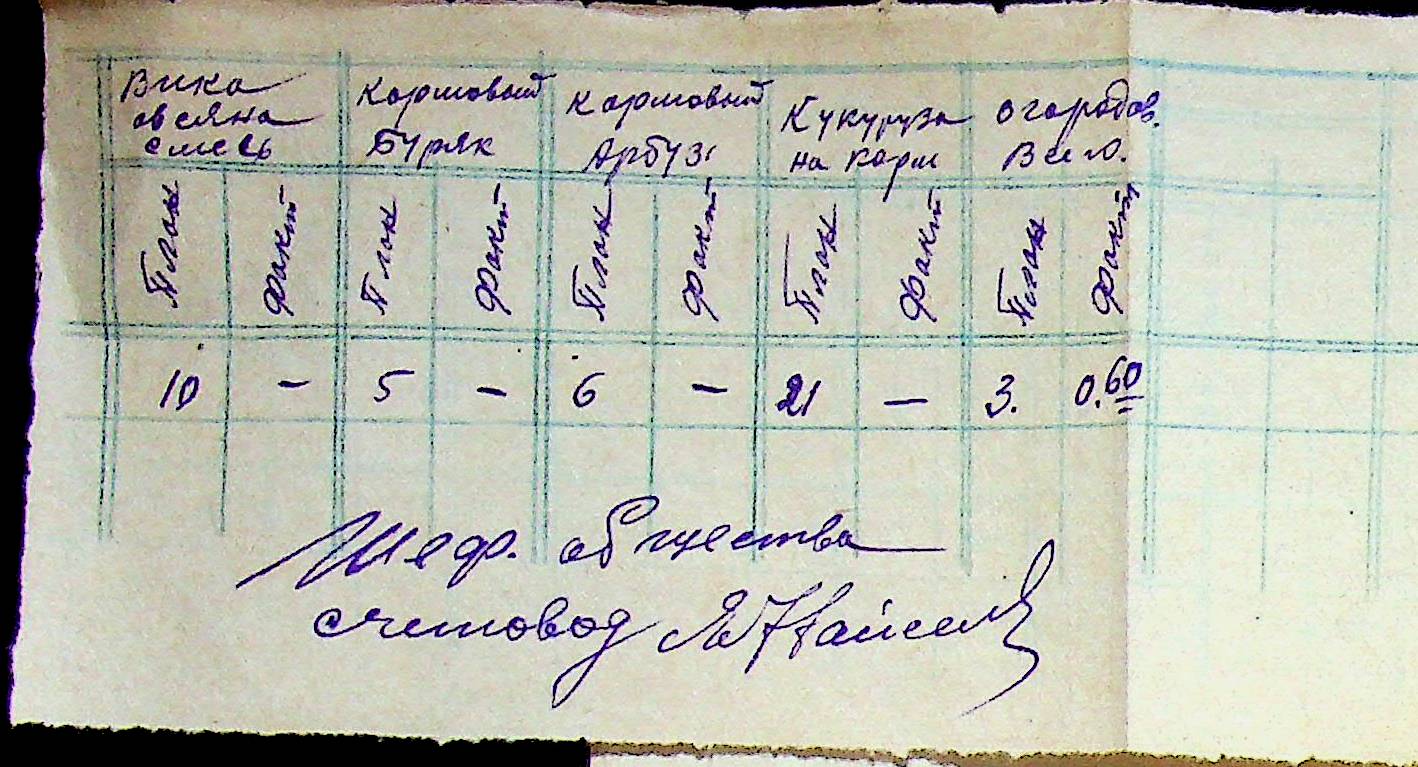 Вика Кормовый Кормовый Кукуруза огородов.
овсяна Буряк Арбуз на Корм Вел.
смесь
План Факт План Факт План Факт План Факт План Факт
10 – 5 – 6 – 21 – 3. 0.60
Шеф. общества
счетовод